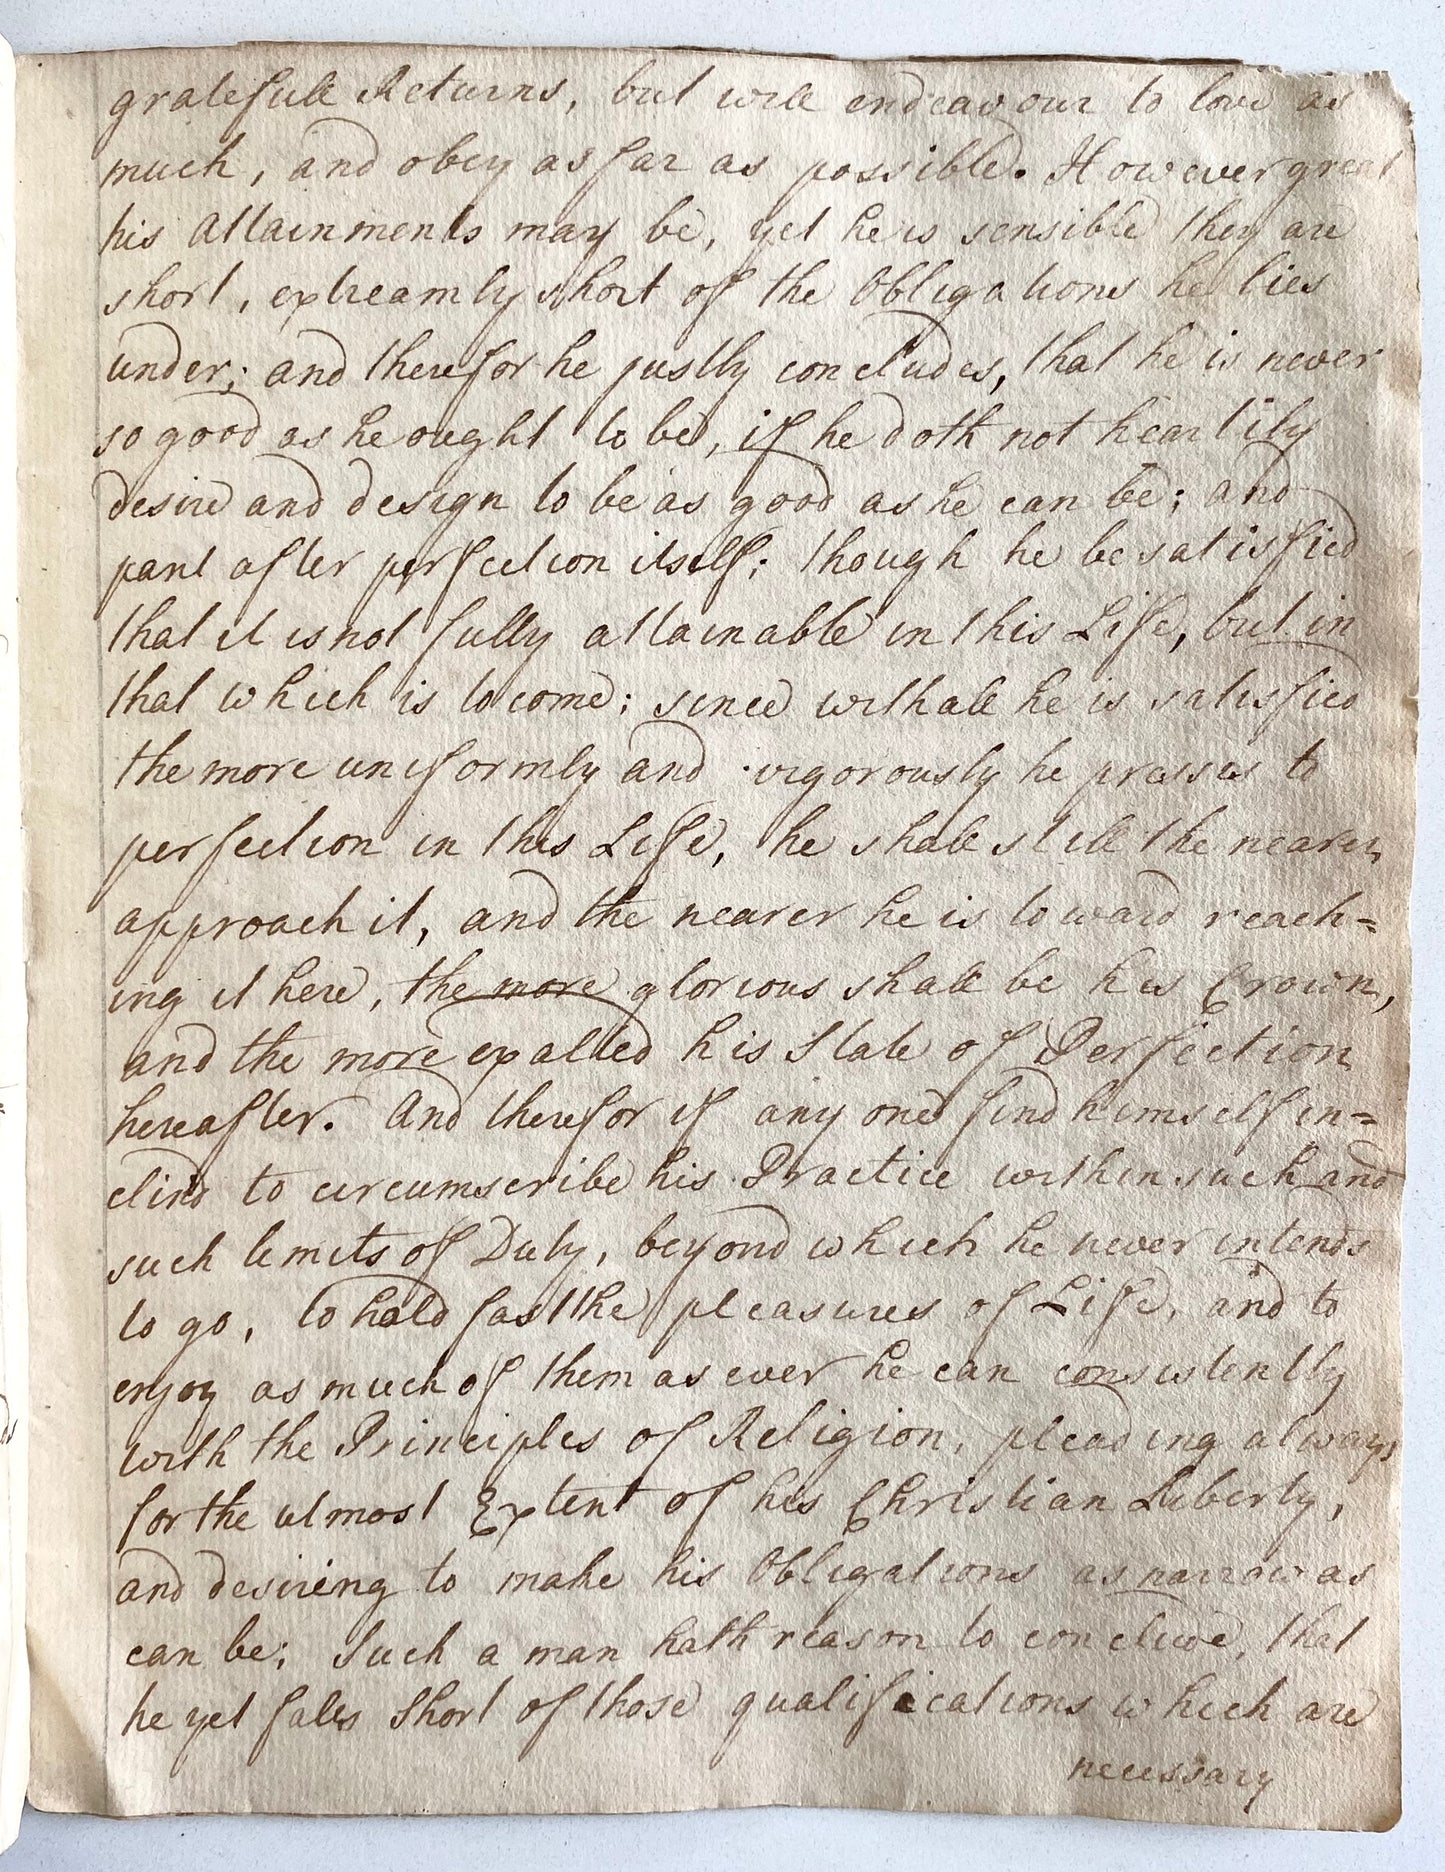 gratefull Returns, but will endeavour to love as
much, and obey as far as possible. However great
his Attainments may be, yet he is sensible they are
short, extreamly short of the Obligations he lies
under; and therefor he justly concludes, that he is never
so good as he ought to be, if he doth not heartily
desire and design to be as good as he can be; and
pant after perfection itself; though he be satisfied
that it is not fully attainable in this Life, but in
that which is to come; since withall he is satisfied
the more uniformly and vigorously he presses to
perfection in this Life, he shall still the nearer
approach it, and the nearer he is toward reach=
ing it here, the more glorious shall be his Crown,
and the more exalted his State of Perfection
hereafter. And therefor if any one find himself in=
clind to circumscribe his Practice within such and
such limits of Duty, beyond which he never intends
to go, to hold fast the pleasures of Life, and to
enjoy as much of them as ever he can consistently
with the Principles of Religion, pleading always
for the utmost Extent of his Christian Liberty,
and desireing to make his Obligations as narrow as
can be; Such a man hath reason to conclude, that
he yet fales Short of those qualifications which are
necessary